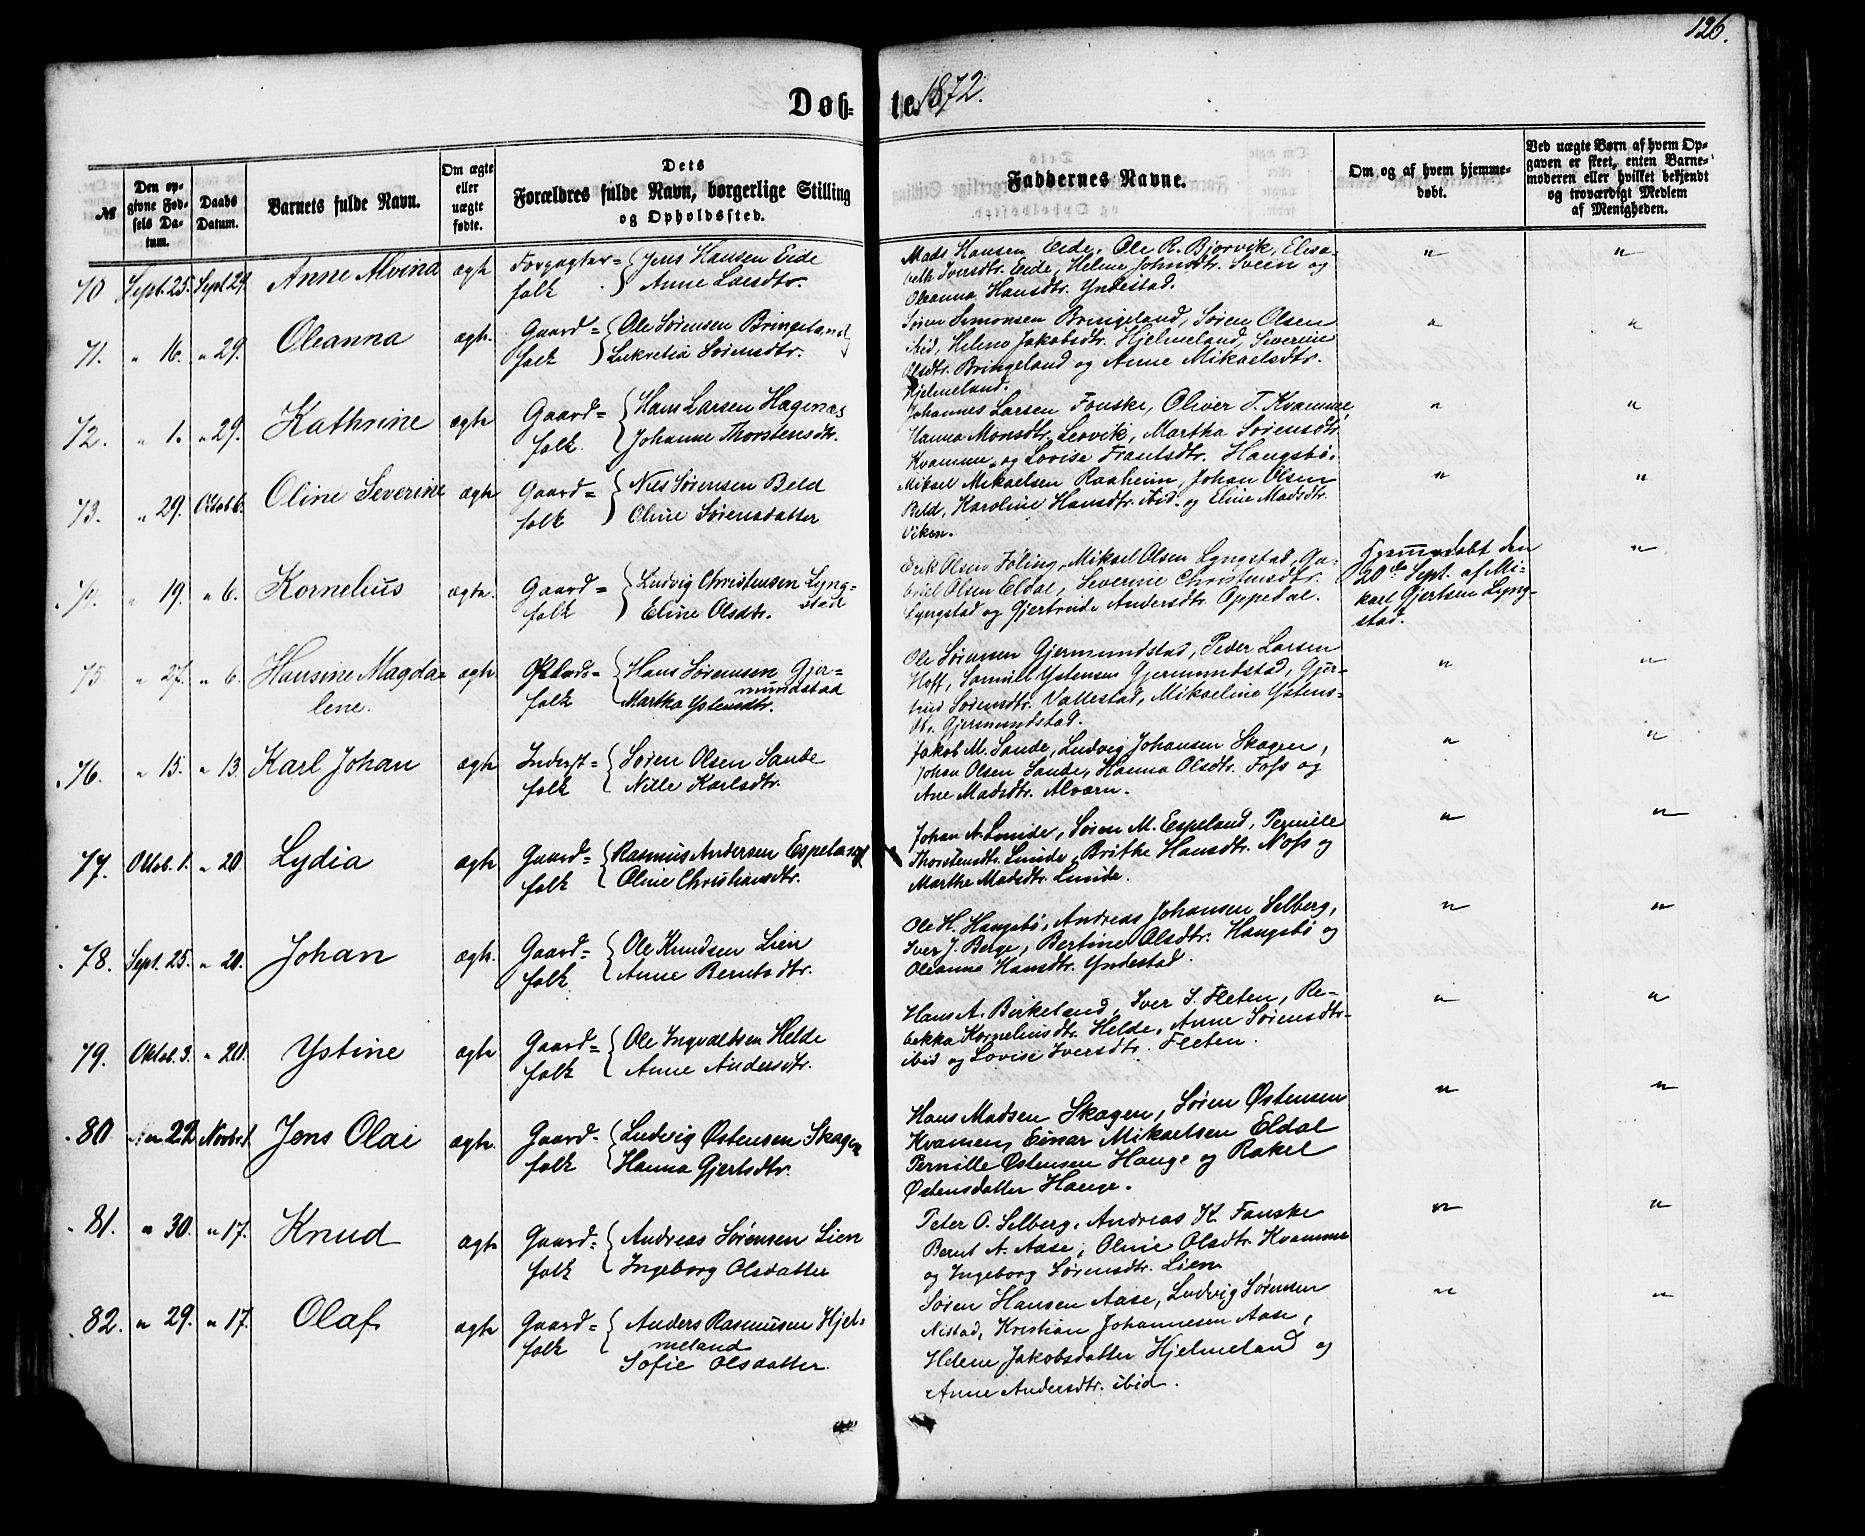 126.
Døb- te. 1872.
№
Den opgivne Fødsels Datum.
Daabs Datum.
Barnets fulde Navn.
Om ægte eller uægte fødte.
Dets Forældres fulde Navn, borgerlige Stilling og Opholdssted.
Faddernes Navne.
Om og af hvem hjemmedøbt.
Ved uægte Børn af hvem Opgaven er skeet, enten Barnemoderen eller hvilket bekjendt og troværdigt Medlem af Menigheden.
70 Sept. 25. Sept 29. Anne Alvina ægte Forpagter= folk { Jens Hansen Eide
Anne Larsdtr.
Mads Hansen Eide, Ole R. Bjorvik, Elisa-
beth Iversdtr. Eide, Helene Johnsdtr. Svein og
Oleanna Hansdtr. Yndestad.
" "
71. " 16. " 29. Oleanna ægte. Gaard= folk { Ole Sørensen Bringeland
Lukretia Sørensdtr.
Søren Simonsen Bringeland, Søren Olsen
ibid, Helene Jakobsdtr. Hjelmeland, Severine
Olsdtr. Bringeland og Anne Mikaelsdtr.
Hjelmeland.
" "
72. " 1. " 29. Kathrine ægte Gaard= folk. { Hans Larsen Hagenæs
Johanne Thorstensdtr.
Johannes Larsen Fonske, Oliver T. Kvamme
Hanna Monsdtr. Lervik, Martha Sørensdtr.
Kvamme, og Lovise Frantsdtr. Haugsbö.
" "
73. " 29. Oktob 6. Oline Severine ægte Gaard= folk { Nils Sørensen Beld
Oline Sørensdatter
Miksel Mikaelsen Raaheim, Johan Olsen
Beld, Karoline Hansdtr. ibid. og Eline Madsdtr.
Viken.
" "
74. " 19. " 6. Kornelius ægte. Gaard= folk { Ludvig Christensen Lyng-
stad
Eline Olsdtr.
Erik Olsen Föling, Miksel Olsen Lyngstad, Ga-
briel Olsen Eldal, Severine Christensdtr.
Lyngstad og Gjertrude Andersdtr. Oppedal.
Hjemmedøbt den
20de Sept. af Mi-
kael Gjertsen Lyng-
stad.
"
75 " 27. " 6. Hansine Magda-
lene. ægte folk { Hans Sørensen Gjer-
mundstad
Martha Ystensdtr.
Ole Sørensen Gjermundstad, Peder Larsen
Hoff, Samuel Ystensen Gjermundstad, Gjer-
trud Sørensdtr. Vallestad, Mikaeline Ystens-
dtr. Gjermundstad.
" "
76. " 15. " 13. Karl Johan ægte Inderst= folk { Søren Olsen Sande
Nille Karlsdtr.
Jakob M. Sande, Ludvig Johansen Skagen,
Johan Olsen Sande, Hanna Olsdtr. Foss og
Ane Madsdtr. Alværn.
" "
77. Oktob. 1. " 20. Lydia ægte Gaard= folk { Rasmus Andersen Espeland
Oline Christiansdtr.
Johan A. Lunde, Søren M. Espeland, Pernille
Thorstensdtr. Lunde, Brithe Hansdtr. Noss og
Marthe Madsdtr. Lunde.
" "
78. Sept. 25. " 20. Johan ægte. Gaard= folk. { Ole Knudsen Lien
Anne Berntsdtr.
Ole H. Haugsbö, Andreas Johansen Selberg,
Iver J. Berge, Bertine Olsdtr. Haugsbö og
Oleanna Hansdtr. Yndestad.
" "
79. Oktob. 3. " 20. Ystine ægte Gaard= folk { Ole Ingvaldsen Helde
Anne Andersdtr.
Hans A. Birkeland, Iver S. Fleten, Re-
bekka Korneliusdtr. Helde, Anne Sørensdtr.
ibid og Lovise Iversdtr. Fleten.
" "
80 22 Novbr 1. Jens Olai ægte. Gaard= folk { Ludvig Østensen Skagen
Hanna Gjertsdtr.
Hans Madsen Skagen, Søren Østensen
Kvamen, Einar Mikaelsen Eldal
Pernille Østensen Hauge og Rakel
Østensdatter Hauge.
" "
81. " 30. " 17. Knud ægte Gaard= folk { Andreas Sørensen Lien
Ingeborg Olsdatter
Peter O. Selberg, Andreas K. Fonske
Bernt A. Aase, Oline Olsdtr. Kvamme
og Ingeborg Sørensdtr. Lien
" "
82. " 29. " 17. Olaf ægte Gaard= folk { Anders Rasmusen Hjel-
meland
Sofie Olsdatter.
Søren Hansen Aase, Ludvig Sørensen
Nistad, Kristian Johannesen Aase,
Helene Jakobsdatter Hjelmeland og
Anne Andersdtr. ibid.
" "